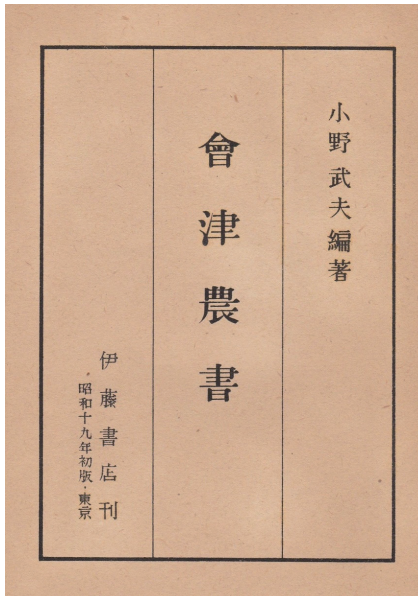 小野武夫編著
會津農書
伊藤書店刊
昭和十九年初版・東京